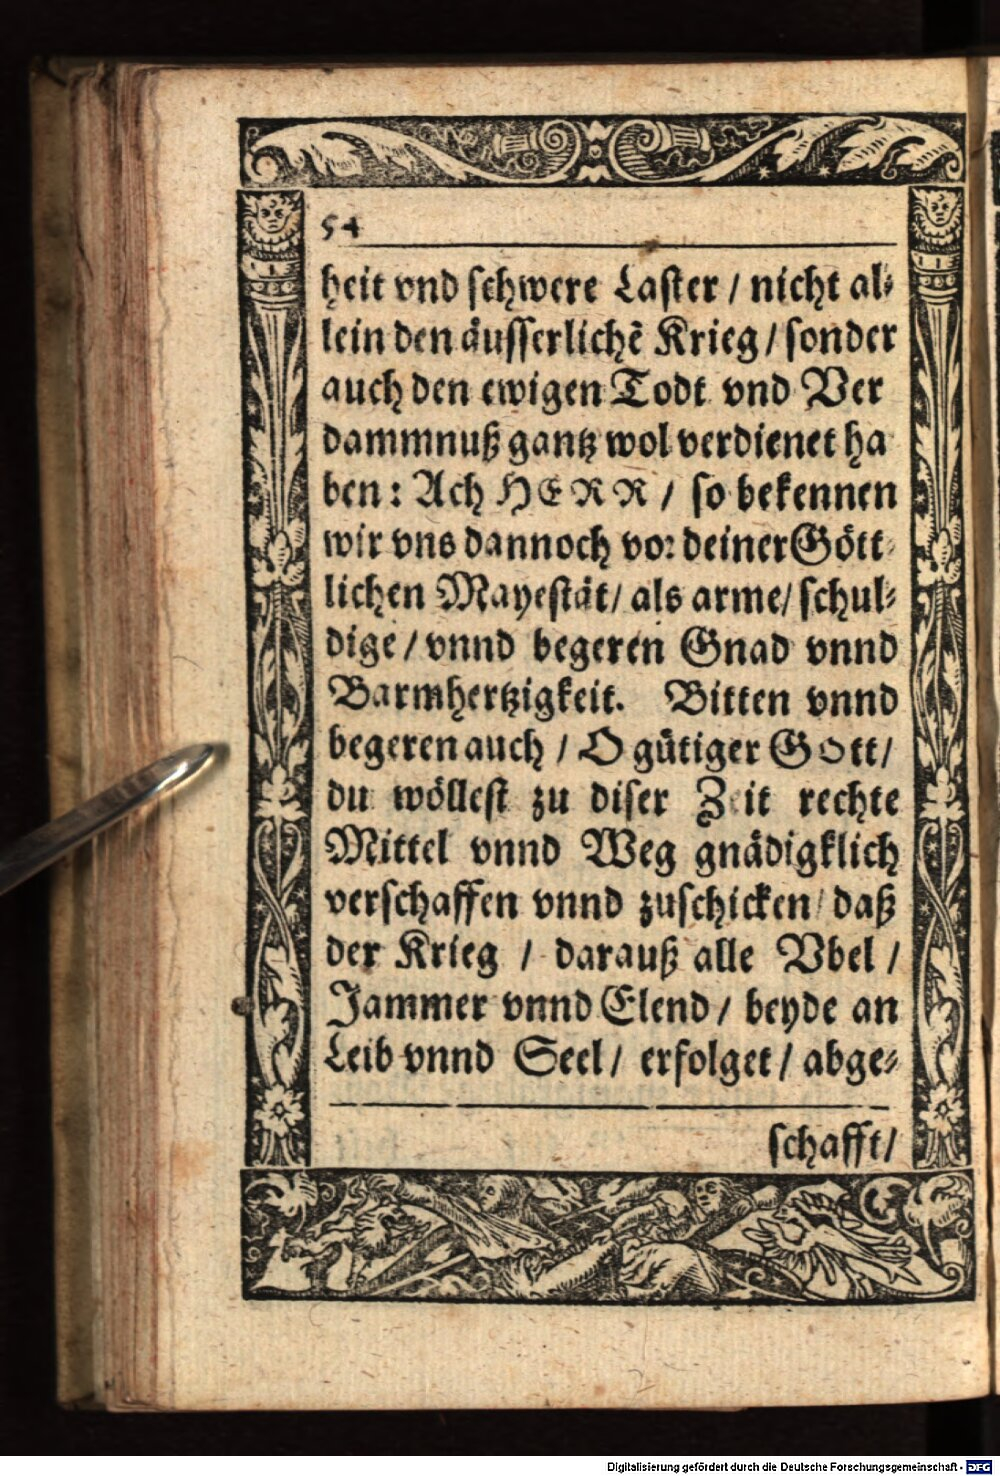 54
heit vnd schwere Laster / nicht al⸗
lein den äusserlichẽ Krieg / sonder
auch den ewigen Todt vnd Ver
dammnuß gantz wol verdienet ha
ben: Ach HERR / so bekennen
wir vns dannoch vor deiner Gött⸗
lichen Mayestät / als arme / schul⸗
dige / vnnd begeren Gnad vnnd
Barmhertzigkeit. Bitten vnnd
begeren auch / O gütiger Gott /
du wöllest zu diser Zeit rechte
Mittel vnnd Weg gnädigklich
verschaffen vnnd zuschicken / daß
der Krieg / darauß alle Vbel /
Jammer vnnd Elend / beyde an
Leib vnnd Seel / erfolget / abge⸗
schafft /
Digitalisierung gefördert durch die Deutsche Forschungsgemeinschaft - DFG